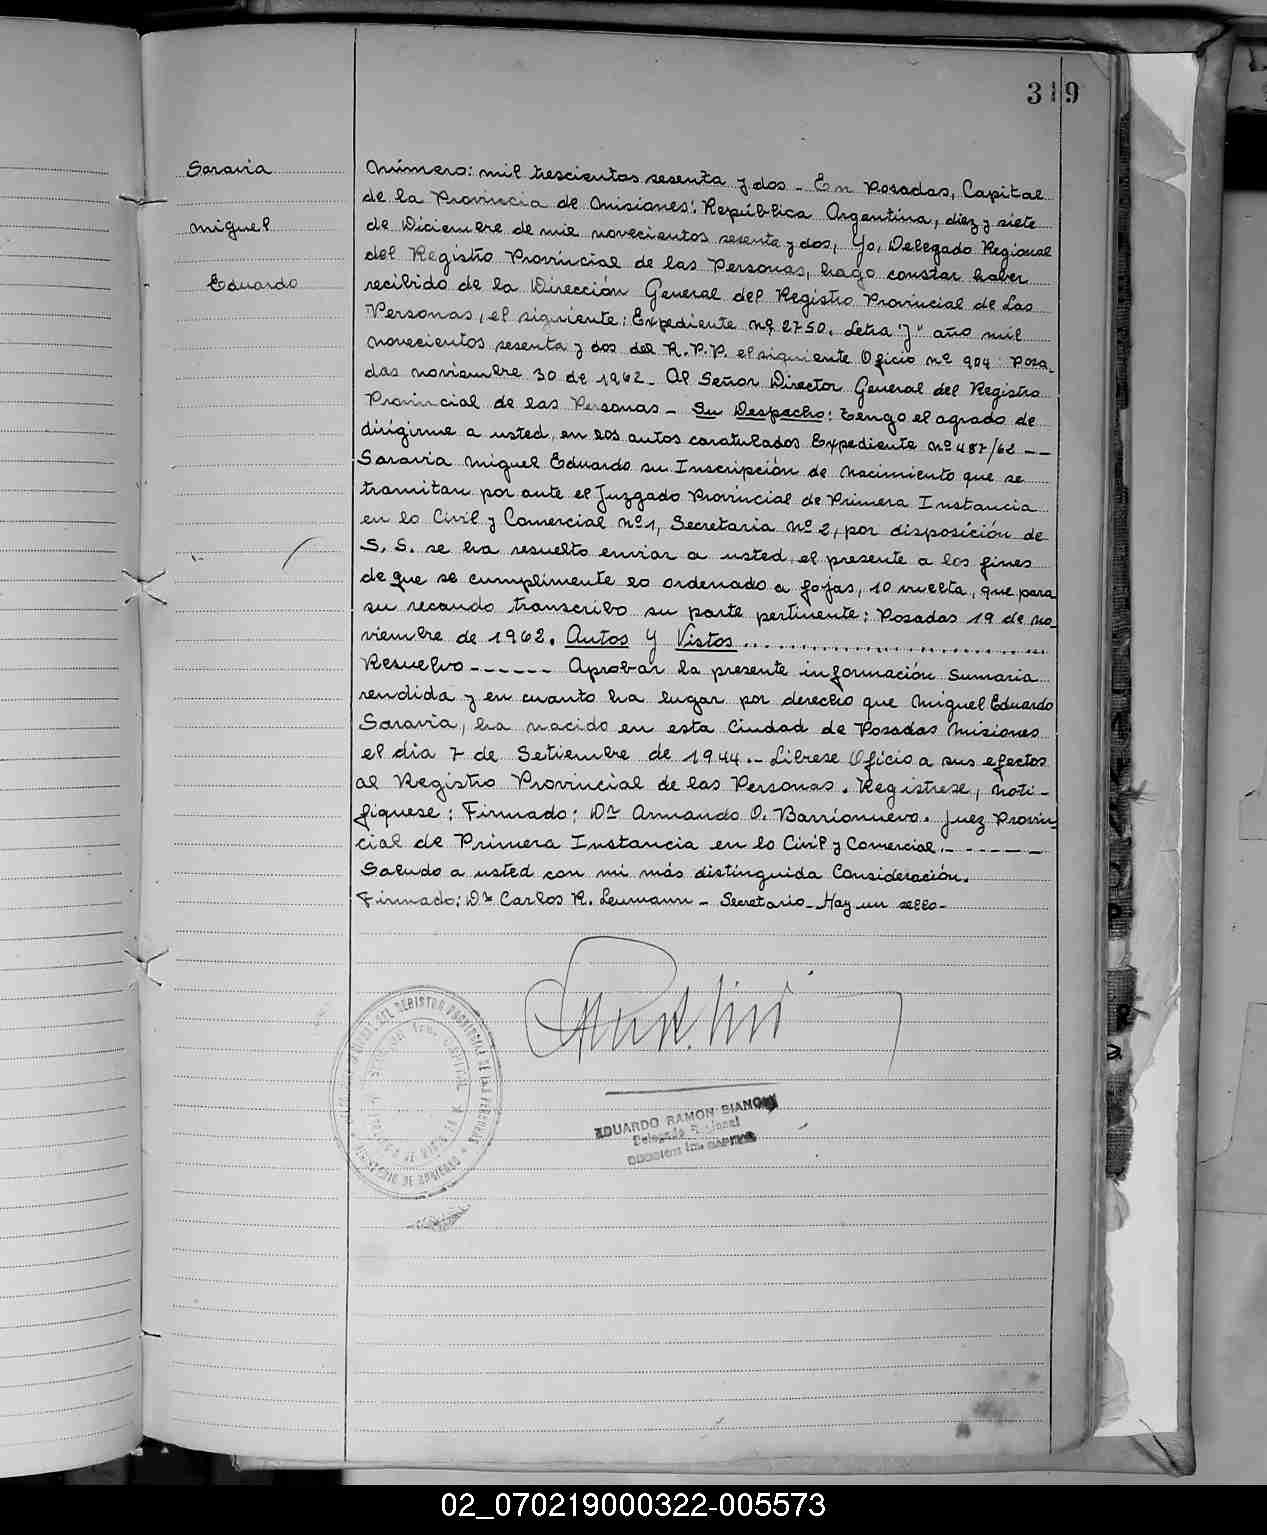 319
Saravia
Miguel
Eduardo
Número: mil trescientos sesenta y dos - En Posadas, Capital
de la Provincia de Misiones: República Argentina, diez y siete
de Diciembre de mil novecientos sesenta y dos, Yo, Delegado Regional
del Registro Provincial de las Personas, hago constar haber
recibido de la Dirección General del Registro Provincial de Las
Personas, el siguiente: Expediente nº 2750. Letra "J" año mil
novecientos sesenta y dos del R.P.P. el siguiente Oficio nº 904: Posa-
das noviembre 30 de 1962 - Al Señor Director General del Registro
Provincial de las Personas - Su Despacho: Tengo el agrado de
dirigirme a usted, en los autos caratulados Expediente nº 487/62 --
Saravia Miguel Eduardo su Inscripción de Nacimiento que se
tramitan por ante el Juzgado Provincial de Primera Instancia
en lo Civil y Comercial nº 1, Secretaria nº 2, por disposición de
S. S. se ha resuelto enviar a usted, el presente a los fines
de que se cumplimente lo ordenado a fojas, 10 vuelta, que para
su recaudo transcribo su parte pertinente: Posadas 19 de no-
viembre de 1962. Autos y Vistos ..............................
Resuelvo ------ Aprobar la presente información Sumaria
rendida y en cuanto ha lugar por derecho que Miguel Eduardo
Saravia, ha nacido en esta Ciudad de Posadas Misiones
el dia 7 de Setiembre de 1944.- Librese Oficio a sus efectos
al Registro Provincial de las Personas. Registrese, noti-
fiquese: Firmado: Dr Armando O. Barrionuevo. Juez Provin-
cial de Primera Instancia en lo Civil y Comercial.- ------
Saludo a usted con mi más distinguida Consideración.
Firmado: Dr Carlos R. Leumann - Secretario - Hay un sello -
DEL REGISTRO PROVINCIAL DE LAS PERSONAS
CAPITAL
MINISTERIO DE GOBIERNO
EDUARDO RAMON BIANCHI
Delegado Regional
02_070219000322-005573